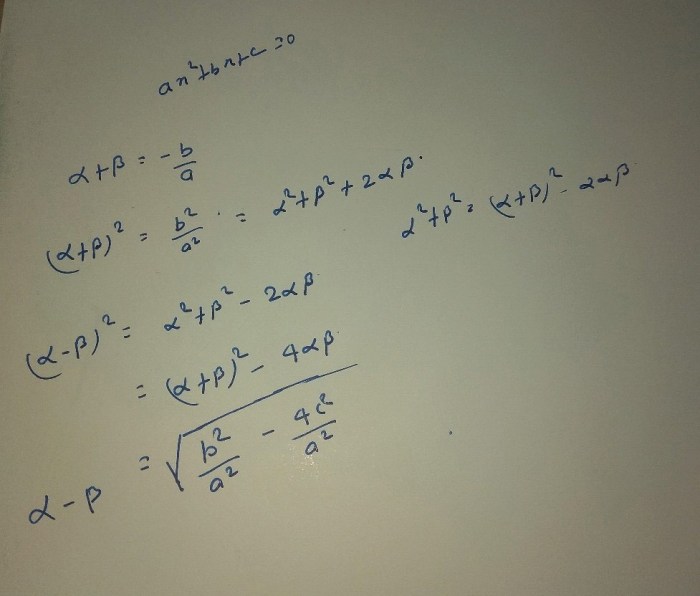 ax²+bx+c=0
α+β = -b/a
(α+β)² = b²/a² = α²+β²+2αβ.
α²+β² = (α+β)² - 2αβ
(α-β)² = α²+β²-2αβ
= (α+β)² - 4αβ
α-β = √(b²/a² - 4c²/a²)